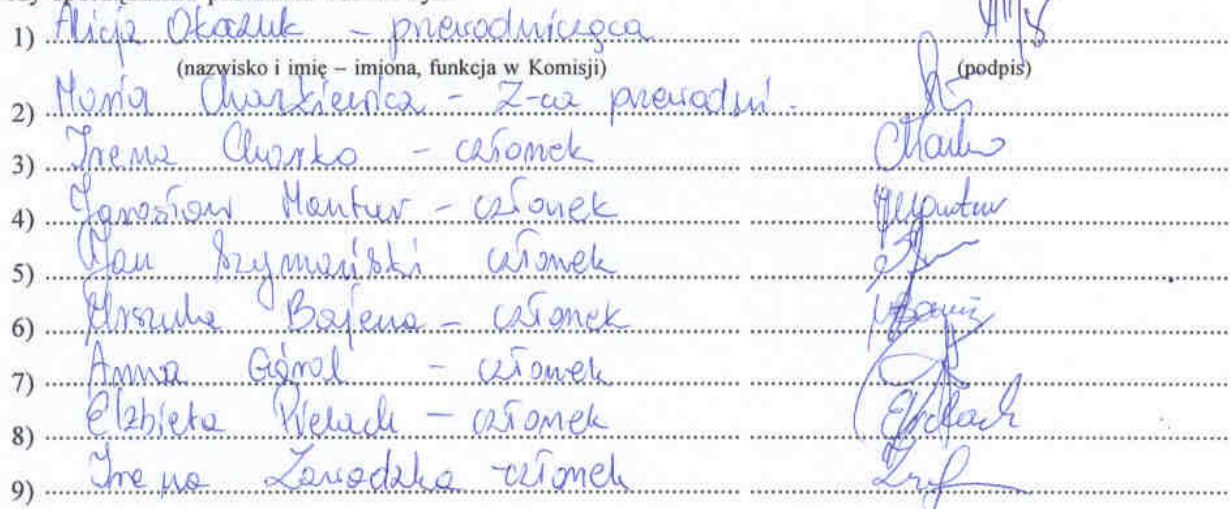 1) Alicja Okaczuk – przewodnicząca
(nazwisko i imię – imiona, funkcja w Komisji) (podpis)
2) Maria Charkiewicz – Z-ca przewodni.
3) Irena Chorko – członek
4) Jarosław Mantur – członek Mantur
5) Jan Szymański członek
6) Urszula Bajena – członek
7) Anna Góral – członek
8) Elżbieta Pielach – członek
9) Irena Zawadzka – członek